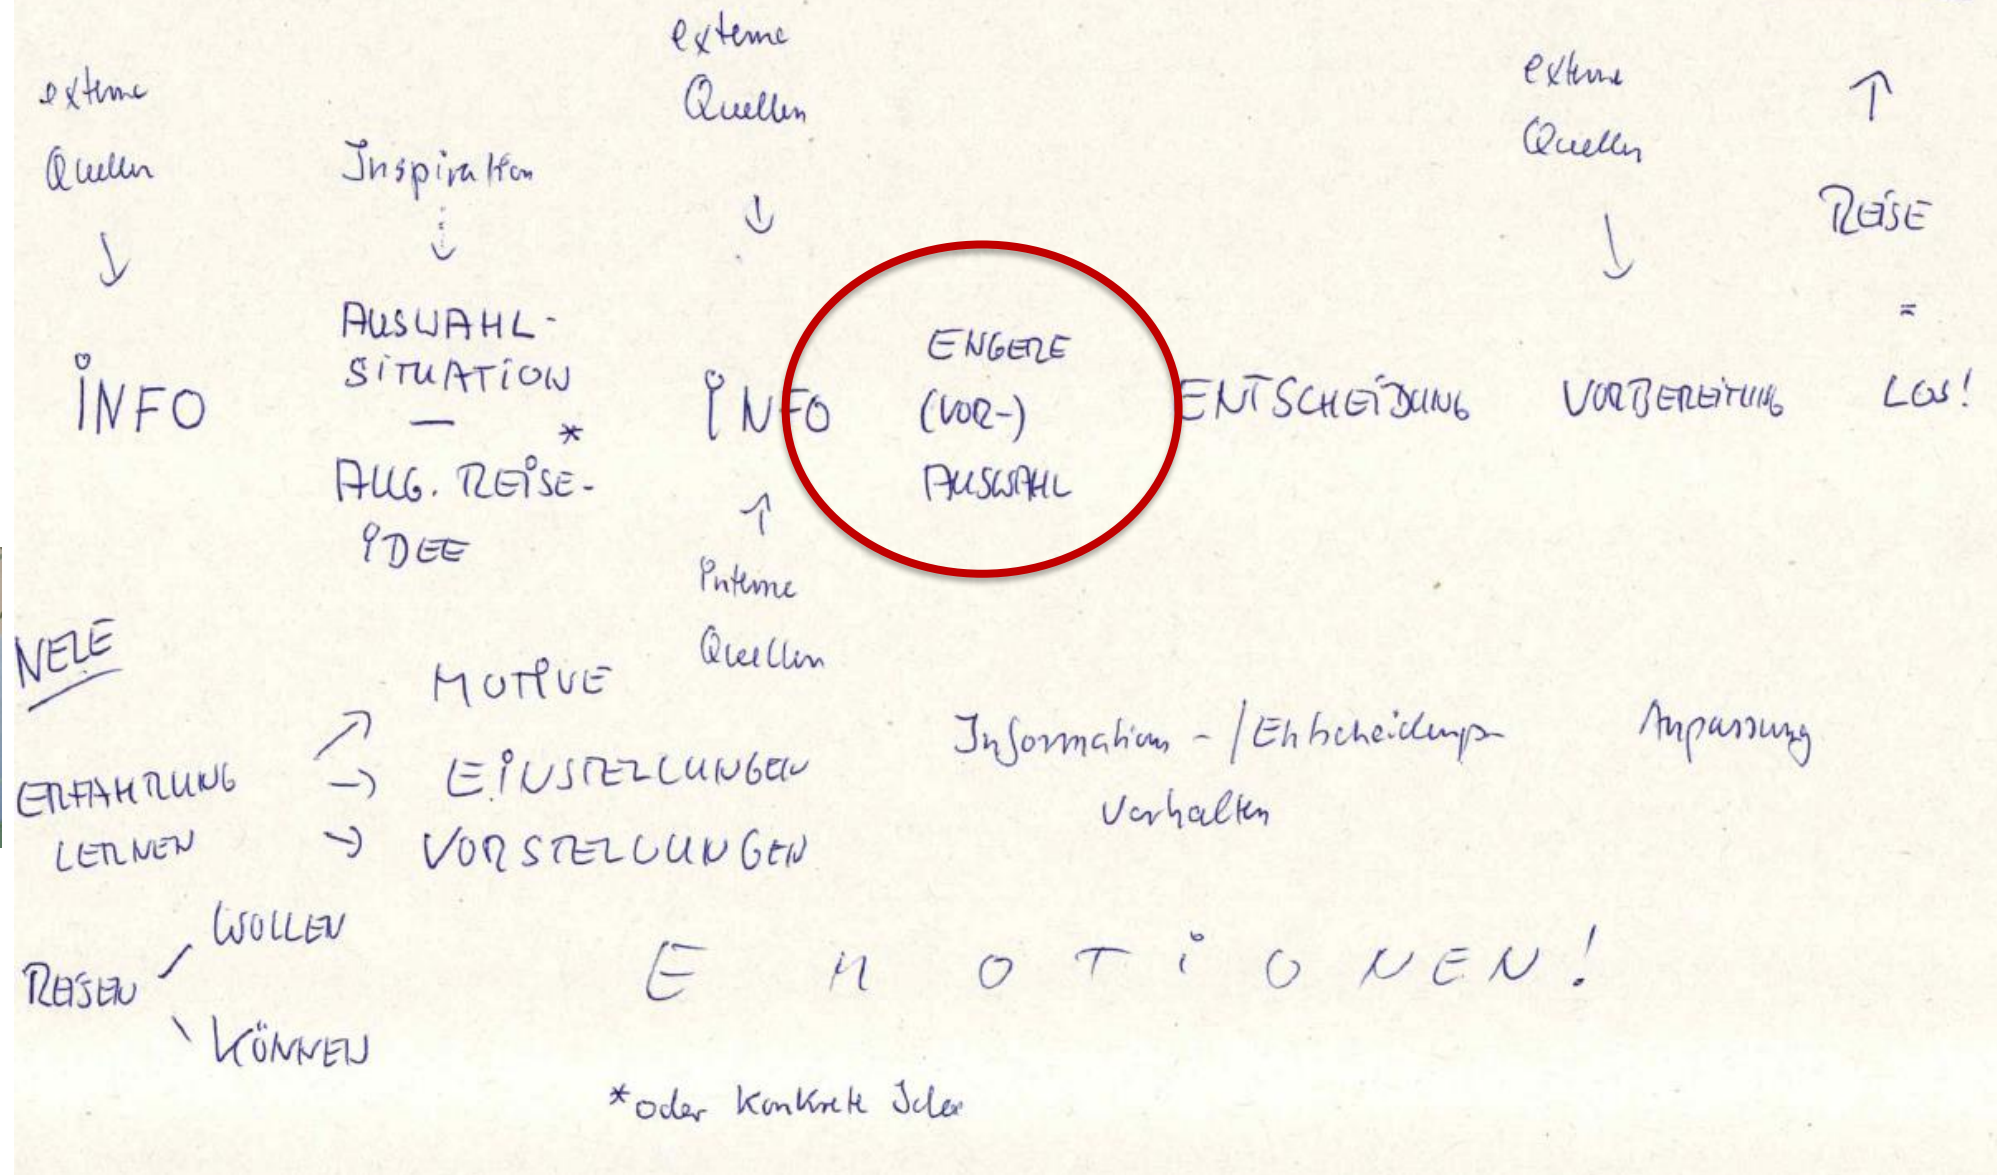 externe
Quellen
↓
INFO
Inspiration
↓
AUSWAHL-
SITUATION
— *
ALLG. REISE-
IDEE
externe
Quellen
↓
INFO
↑
interne
Quellen
ENGERE
(VOR-)
AUSWAHL
ENTSCHEIDUNG
externe
Quellen
↓
VORBEREITUNG
↑
REISE
=
LOS!
NELE
ERFAHRUNG
LERNEN
↗ MOTIVE
→ EINSTELLUNGEN
→ VORSTELLUNGEN
Informations-/Entscheidungs-
verhalten
Anpassung
REISEN
WOLLEN
KÖNNEN
EMOTIONEN!
*oder konkrete Idee